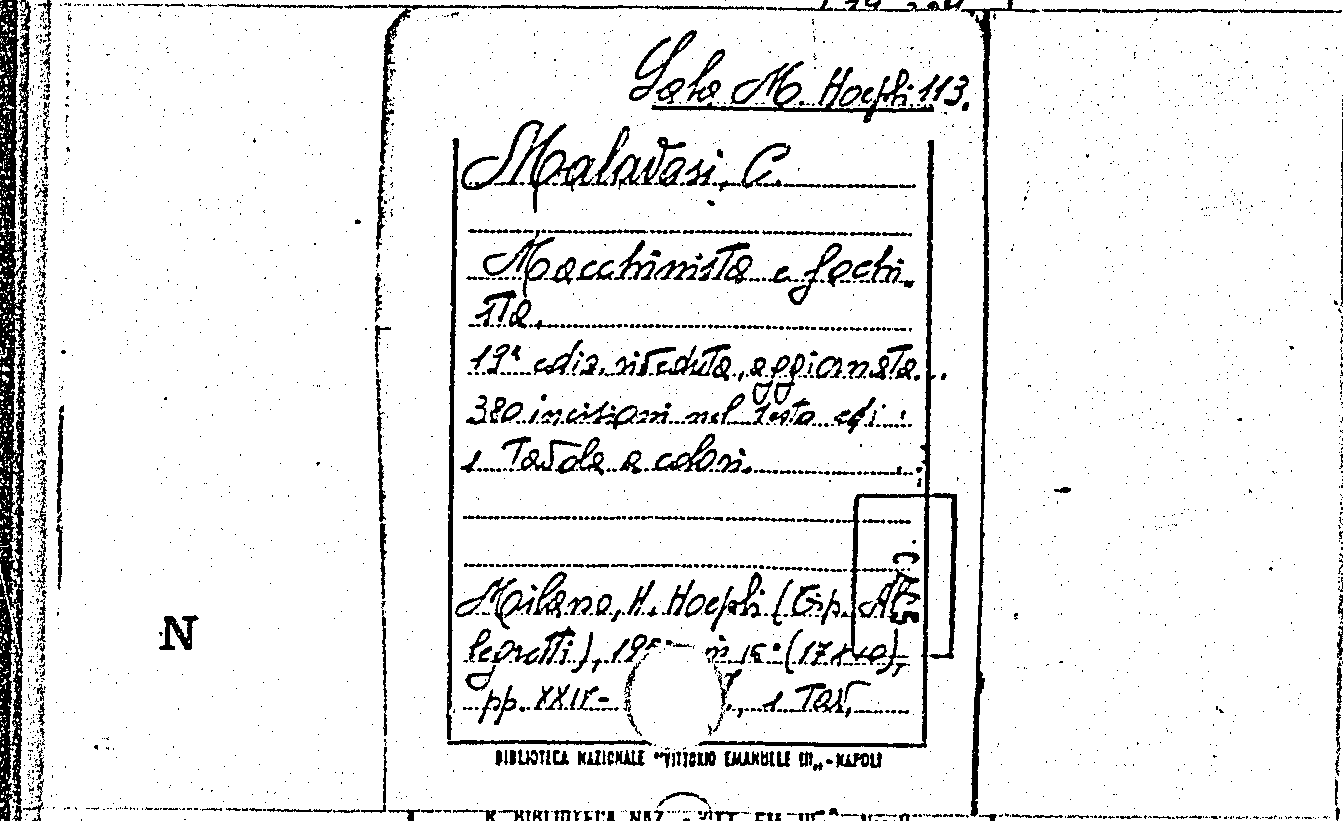 Sala M. Hoepli 113.
Malavasi, C.
Macchinista e fochi-
sta.
19ª ediz. riveduta, aggiornata...
380 incisioni nel testo ed
1 Tavola a colori.
CAT 5
Milano, H. Hoepli (Tip. Al-
legretti), 195 in 16° (17x10),
pp. XXIV- , 1 Tav.
N
BIBLIOTECA NAZIONALE "VITTORIO EMANUELE III„ - NAPOLI
R. BIBLIOTECA NAZ. - VITT. EM. III